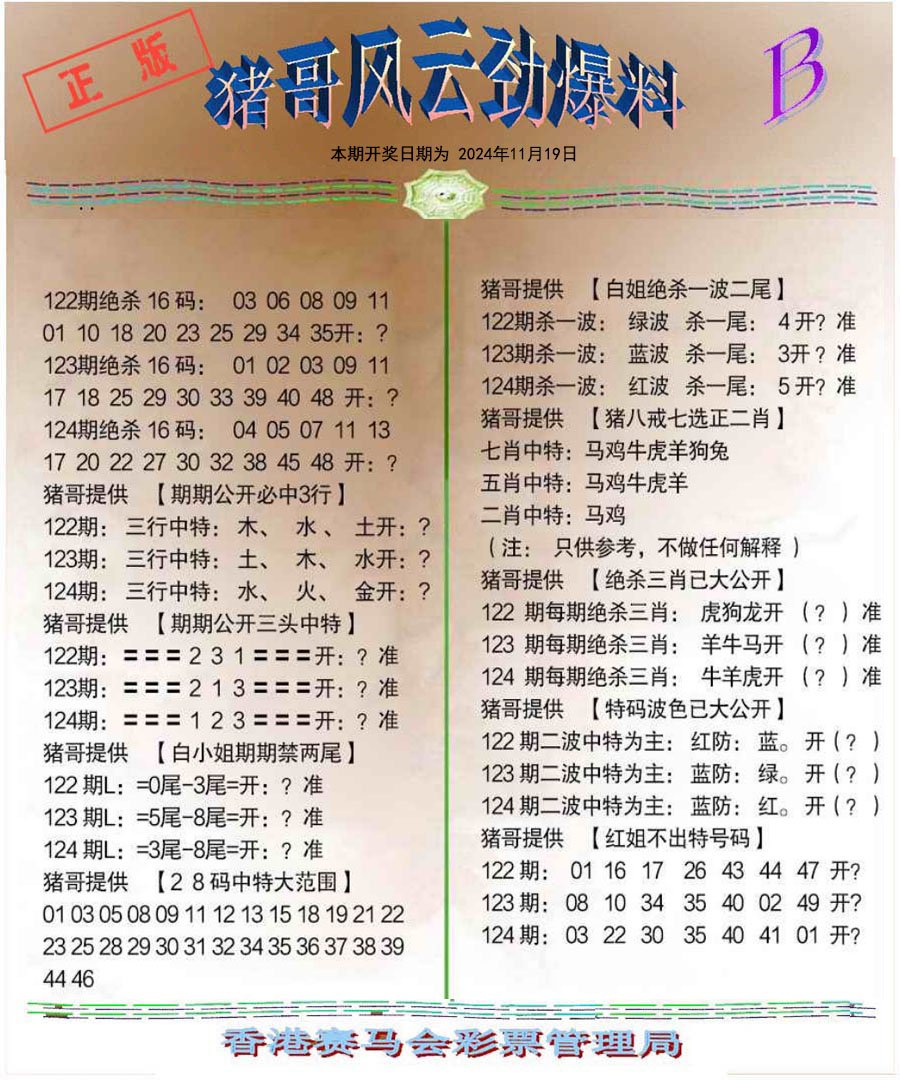 正版
猪哥风云劲爆料
B
本期开奖日期为 2024年11月19日
122期绝杀16码： 03 06 08 09 11
01 10 18 20 23 25 29 34 35开：？
123期绝杀16码： 01 02 03 09 11
17 18 25 29 30 33 39 40 48 开：？
124期绝杀16码： 04 05 07 11 13
17 20 22 27 30 32 38 45 48 开：？
猪哥提供 【期期公开必中3行】
122期： 三行中特： 木、 水 、 土开：？
123期： 三行中特： 土、 木、 水开：？
124期： 三行中特： 水、 火、 金开：？
猪哥提供 【期期公开三头中特】
122期：===2 3 1===开：？准
123期：===2 1 3===开：？准
124期：===1 2 3===开：？准
猪哥提供 【白小姐期期禁两尾】
122 期L：=0尾-3尾=开：？准
123 期L：=5尾-8尾=开：？准
124 期L：=3尾-8尾=开：？准
猪哥提供 【2 8码中特大范围】
01 03 05 08 09 11 12 13 15 18 19 21 22
23 25 28 29 30 31 32 34 35 36 37 38 39
44 46
猪哥提供 【白姐绝杀一波二尾】
122期杀一波： 绿波 杀一尾： 4开？准
123期杀一波： 蓝波 杀一尾： 3开？准
124期杀一波： 红波 杀一尾： 5开？准
猪哥提供 【猪八戒七选正二肖】
七肖中特：马鸡牛虎羊狗兔
五肖中特：马鸡牛虎羊
二肖中特：马鸡
（注： 只供参考，不做任何解释 ）
猪哥提供 【绝杀三肖已大公开】
122 期每期绝杀三肖： 虎狗龙开 （？ ）准
123 期每期绝杀三肖： 羊牛马开 （？ ）准
124 期每期绝杀三肖： 牛羊虎开 （？ ）准
猪哥提供 【特码波色已大公开】
122 期二波中特为主： 红防： 蓝。 开（？ ）
123 期二波中特为主： 蓝防： 绿。 开（？ ）
124 期二波中特为主： 蓝防： 红。 开（？ ）
猪哥提供 【红姐不出特号码】
122 期： 01 16 17 26 43 44 47 开？
123 期： 08 10 34 35 40 02 49 开？
124 期： 03 22 30 35 40 41 01 开？
香港赛马会彩票管理局